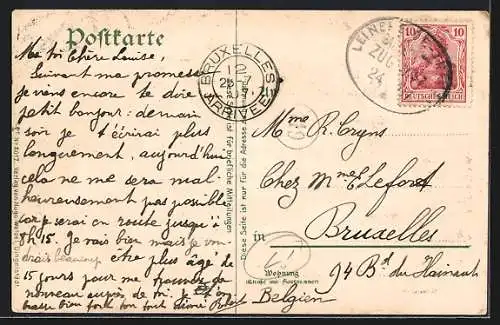 Postkarte
Ma toi Chère Louise,
Suivant ma promesse
je viens encore te dire
petit bonjour: demain
soir je t'écrirai plus
longuement, aujourd'hui
cela ne me sera mal-
heureusement pas possible
car je serai en route jusqu'à
4h 15. Je vais bien mais je
vrais beaucoup être plus âgé de
15 jours pour me trouver de
nouveau auprès de toi.
baise bien fort ton tout dévoué
BRUXELLES
12
25-7
ARRIVÉE
Diese Seite ist nur für die Adresse
für briefliche Mitteilungen
ZUG
24
10 10
DEUTSCHES REICH
Mme R. Cryns
Chez Mme Lefort
in Bruxelles
Wohnung
(Straße und Hausnummer)
94 Bd du Hainaut
Belgien